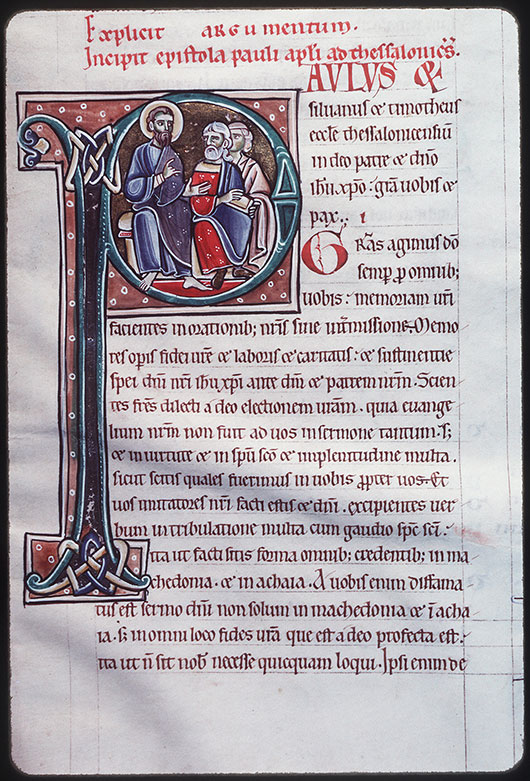 Explicit argumentum.
Incipit epistola pauli apli ad thessalonicēs.
PAULUS &
siluanus & timotheus
eccle thessalonicensiū
in deo patre & dno
ihu xpo: gr̄a uobis &
pax. I
Gr̄as agimus dō
semp p omnib;
uobis: memoriam ur̄i
facientes in orationib; nr̄is sine intmissione. Memo
res opis fidei ur̄e & laboris & caritatis: & sustinentie
spei dn̄i nr̄i ihu xp̄i ante dm̄ & patrem nr̄m. Scien
tes fr̄es dilecti a deo electionem ur̄am. quia euange
lium nr̄m non fuit ad uos in sermone tantum. s;
& in uirtute & in sp̄u sc̄o & in plenitudine multa.
sicut scitis quales fuerimus in uobis ꝓpter uos. Et
uos imitatores nr̄i facti estis & dn̄i. excipientes uer
bum in tribulatione multa cum gaudio sp̄c sc̄i.
ita ut facti sitis forma omnib; credentib; in ma
chedonia. & in achaia. A uobis enim diffama
tus est sermo dn̄i non solum in machedonia & ī acha
ia. s; in omni loco fides ur̄a que est a deo profecta est.
ita ut n̄ sit nob̄ necesse quicquam loqui. Ipsi enim de